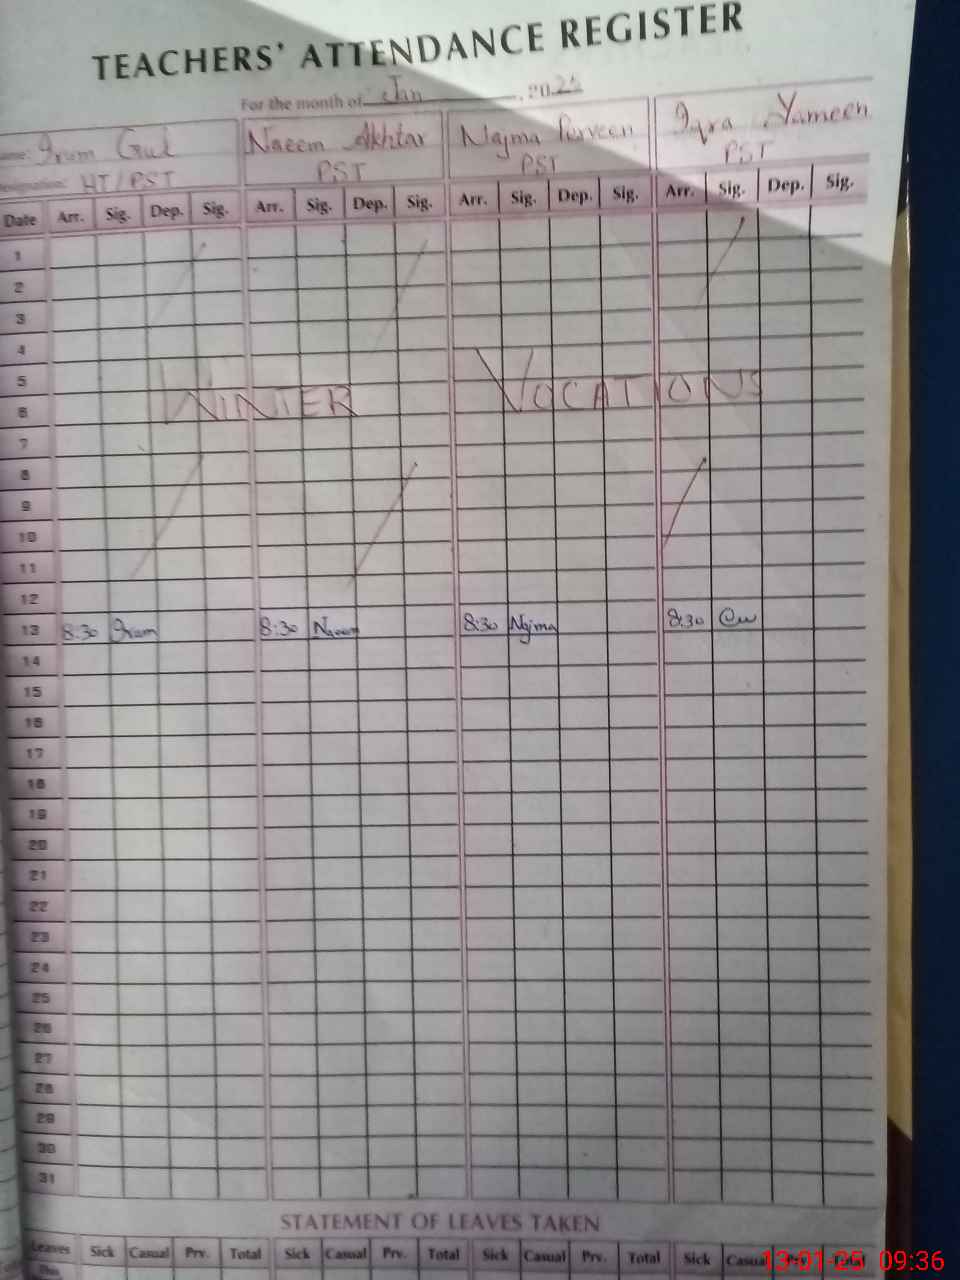 TEACHERS' ATTENDANCE REGISTER
For the month of Jan , 2025
Name: Irum Gul Naeem Akhtar Najma Parveen Iqra Yameen
Designation: HT/PST PST PST PST
Date Arr. Sig. Dep. Sig. Arr. Sig. Dep. Sig. Arr. Sig. Dep. Sig. Arr. Sig. Dep. Sig.
1
2
3
4
5
6 WINTER VOCATIONS
7
8
9
10
11
12
13 8:30 Irum 8:30 Naeem 8:30 Najma 8:30
14
15
16
17
18
19
20
21
22
23
24
25
26
27
28
29
30
31
STATEMENT OF LEAVES TAKEN
Leaves Sick Casual Prv. Total Sick Casual Prv. Total Sick Casual Prv. Total Sick Casual Prv. Total
13-01-25 09:36